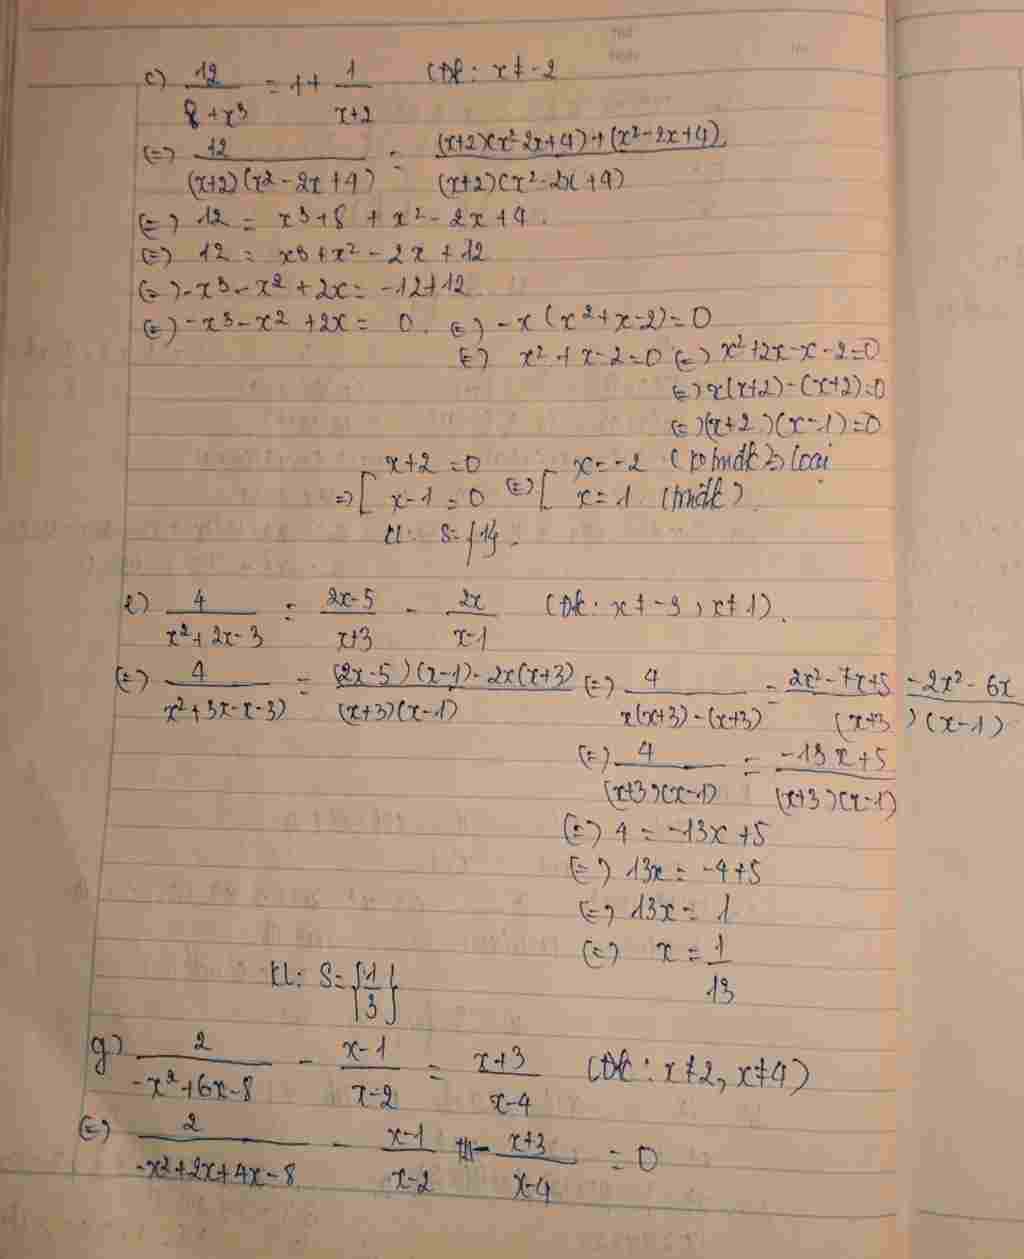 c) 12/(8+x³) = 1+ 1/(x+2) (Đk: x≠-2
(=) 12/((x+2)(x²-2x+4)) = ((x+2)(x²-2x+4)+(x²-2x+4))/((x+2)(x²-2x+4))
(=) 12 = x³+8 + x²-2x+4.
(=) 12 = x³+x²-2x+12
(=) -x³-x²+2x = -12+12
(=) -x³-x²+2x = 0. (=) -x(x²+x-2)=0
(=) x²+x-2=0 (=) x²+2x-x-2=0
(=) x(x+2)-(x+2)=0
(=) (x+2)(x-1)=0
=) [ x+2=0 (=) [ x=-2 (ktmđk) loại
x-1=0 x=1 (tmđk).
Kl: S={1}.
e) 4/(x²+2x-3) = (2x-5)/(x+3) - 2x/(x-1) (Đk: x≠-3, x≠1).
(=) 4/(x²+3x-x-3) = ((2x-5)(x-1)-2x(x+3))/((x+3)(x-1)) (=) 4/(x(x+3)-(x+3)) = (2x²-7x+5-2x²-6x)/((x+3)(x-1))
(=) 4/((x+3)(x-1)) = (-13x+5)/((x+3)(x-1))
(=) 4 = -13x+5
(=) 13x = -4+5
(=) 13x = 1
(=) x = 1/13
Kl: S={1/3}
g) 2/(-x²+6x-8) - (x-1)/(x-2) = (x+3)/(x-4) (Đk: x≠2, x≠4)
(=) 2/(-x²+2x+4x-8) - (x-1)/(x-2) - (x+3)/(x-4) = 0